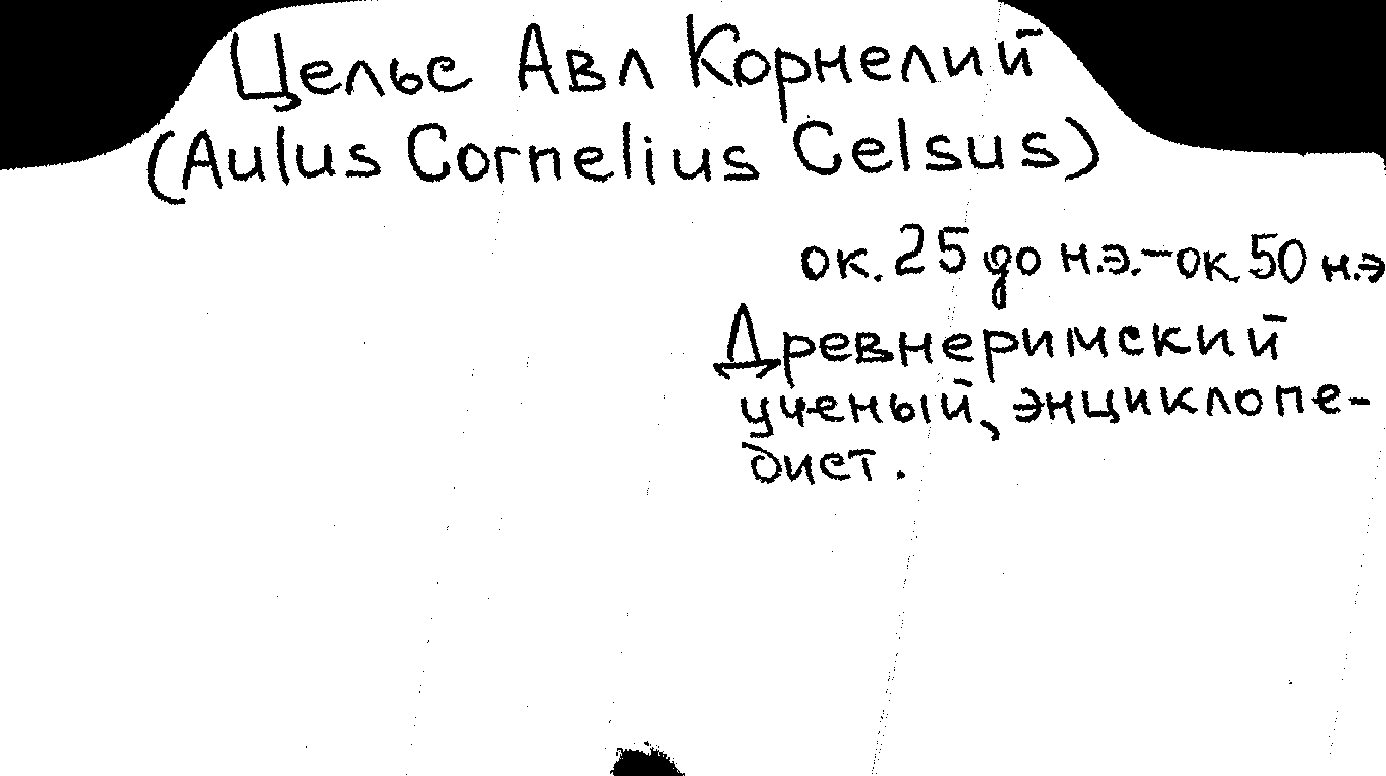 Цельс Авл Корнелий
(Aulus Cornelius Celsus)
ок. 25 до н.э.-ок. 50 н.э
Древнеримский
ученый, энциклопе-
дист.